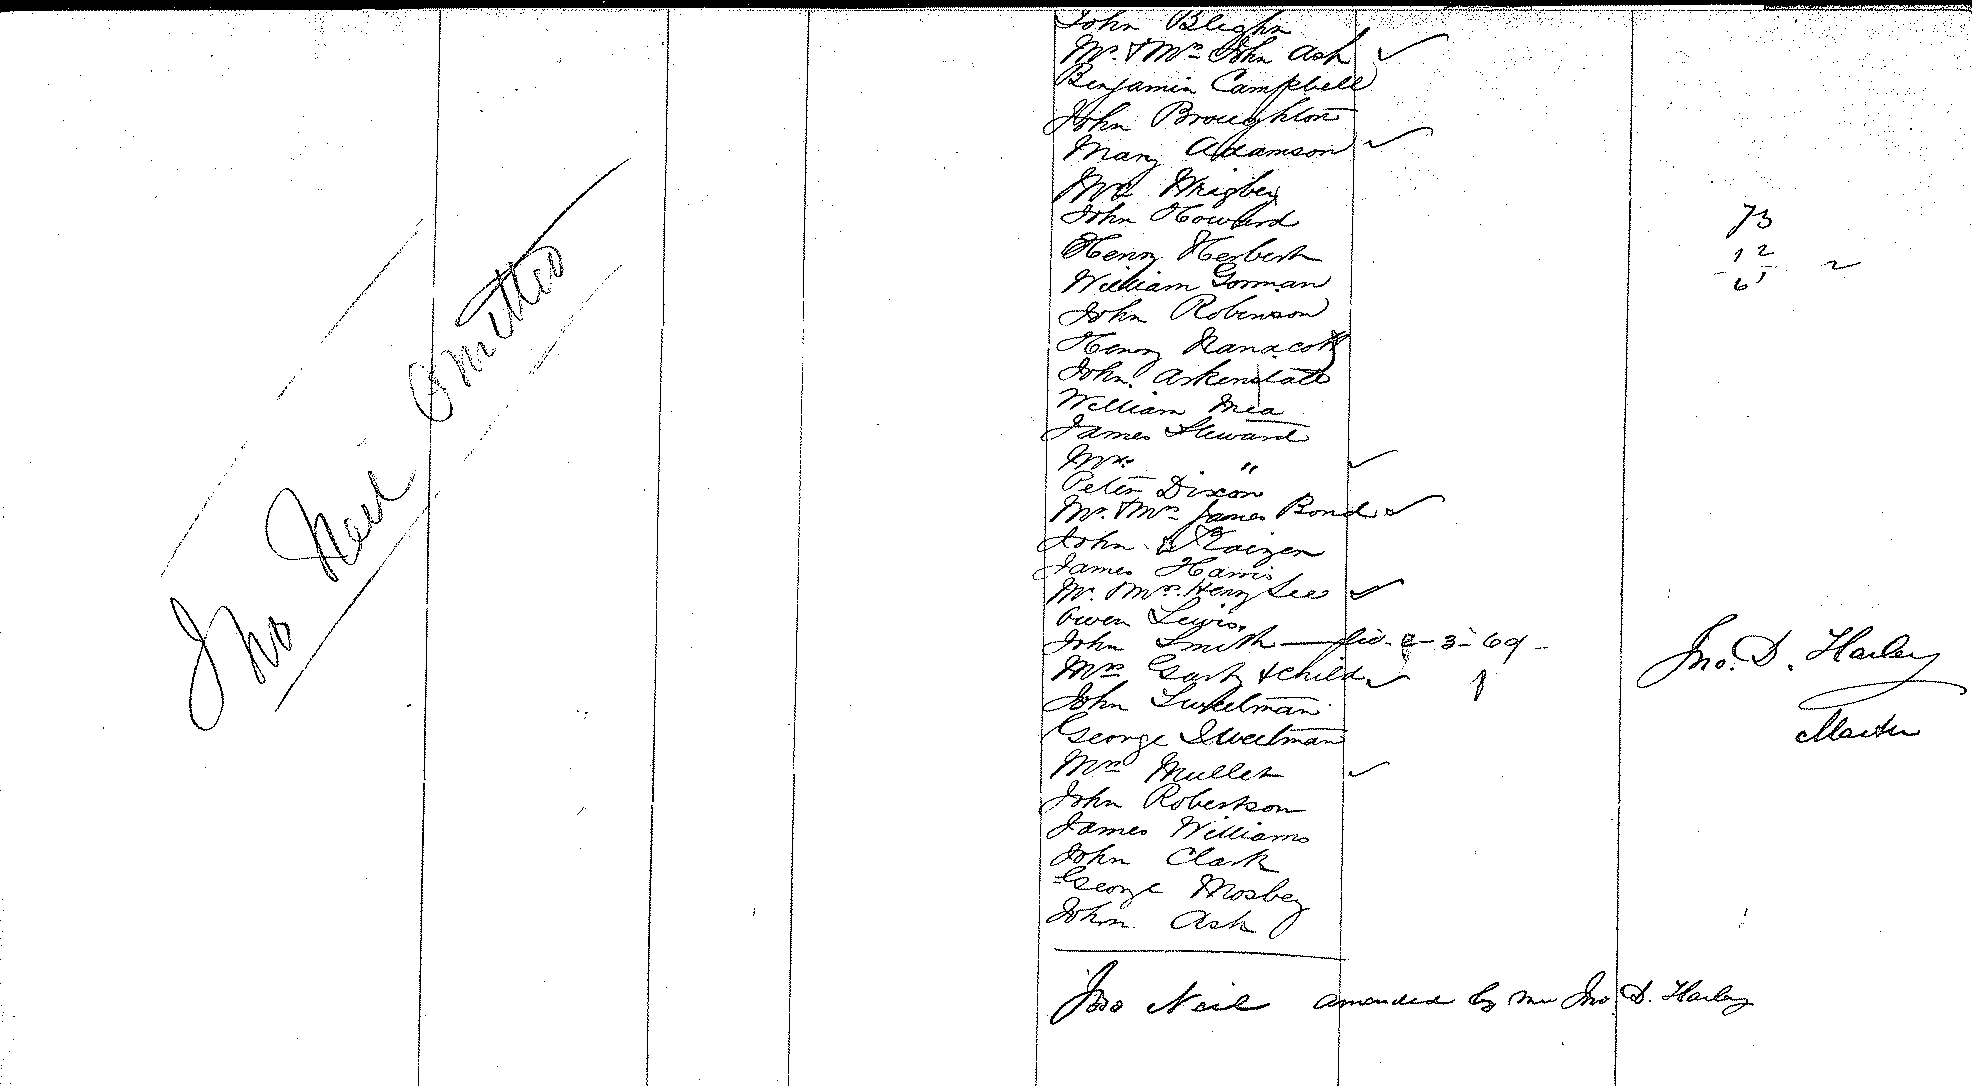 John Bleghn
Mr. & Mrs John Ash ✓
Benjamin Campbell
John Broughton
Mary Adamson ✓
Mrs Wrigley
John Howard
Henry Herbert
William Gorman
John Robinson
Henry Nanacott
John Arkenstall
William Mea
James Steward
Mrs. " ✓
Peter Dixon
Mr. & Mrs James Bond ✓
John
James Harris
Mr. & Mrs. Henry Lee ✓
Owen Lewis
John Smith — - 3 - 69 -
Mrs & child ✓
John
George Sweetman
Mrs Muller ✓
John Robertson
James Williams
John Clark
George Mosbey
John Ash
Jno Neil amended by me Jno. D. Harley
Jno Neil Omitted
73
12
61
Jno. D. Harley
Master